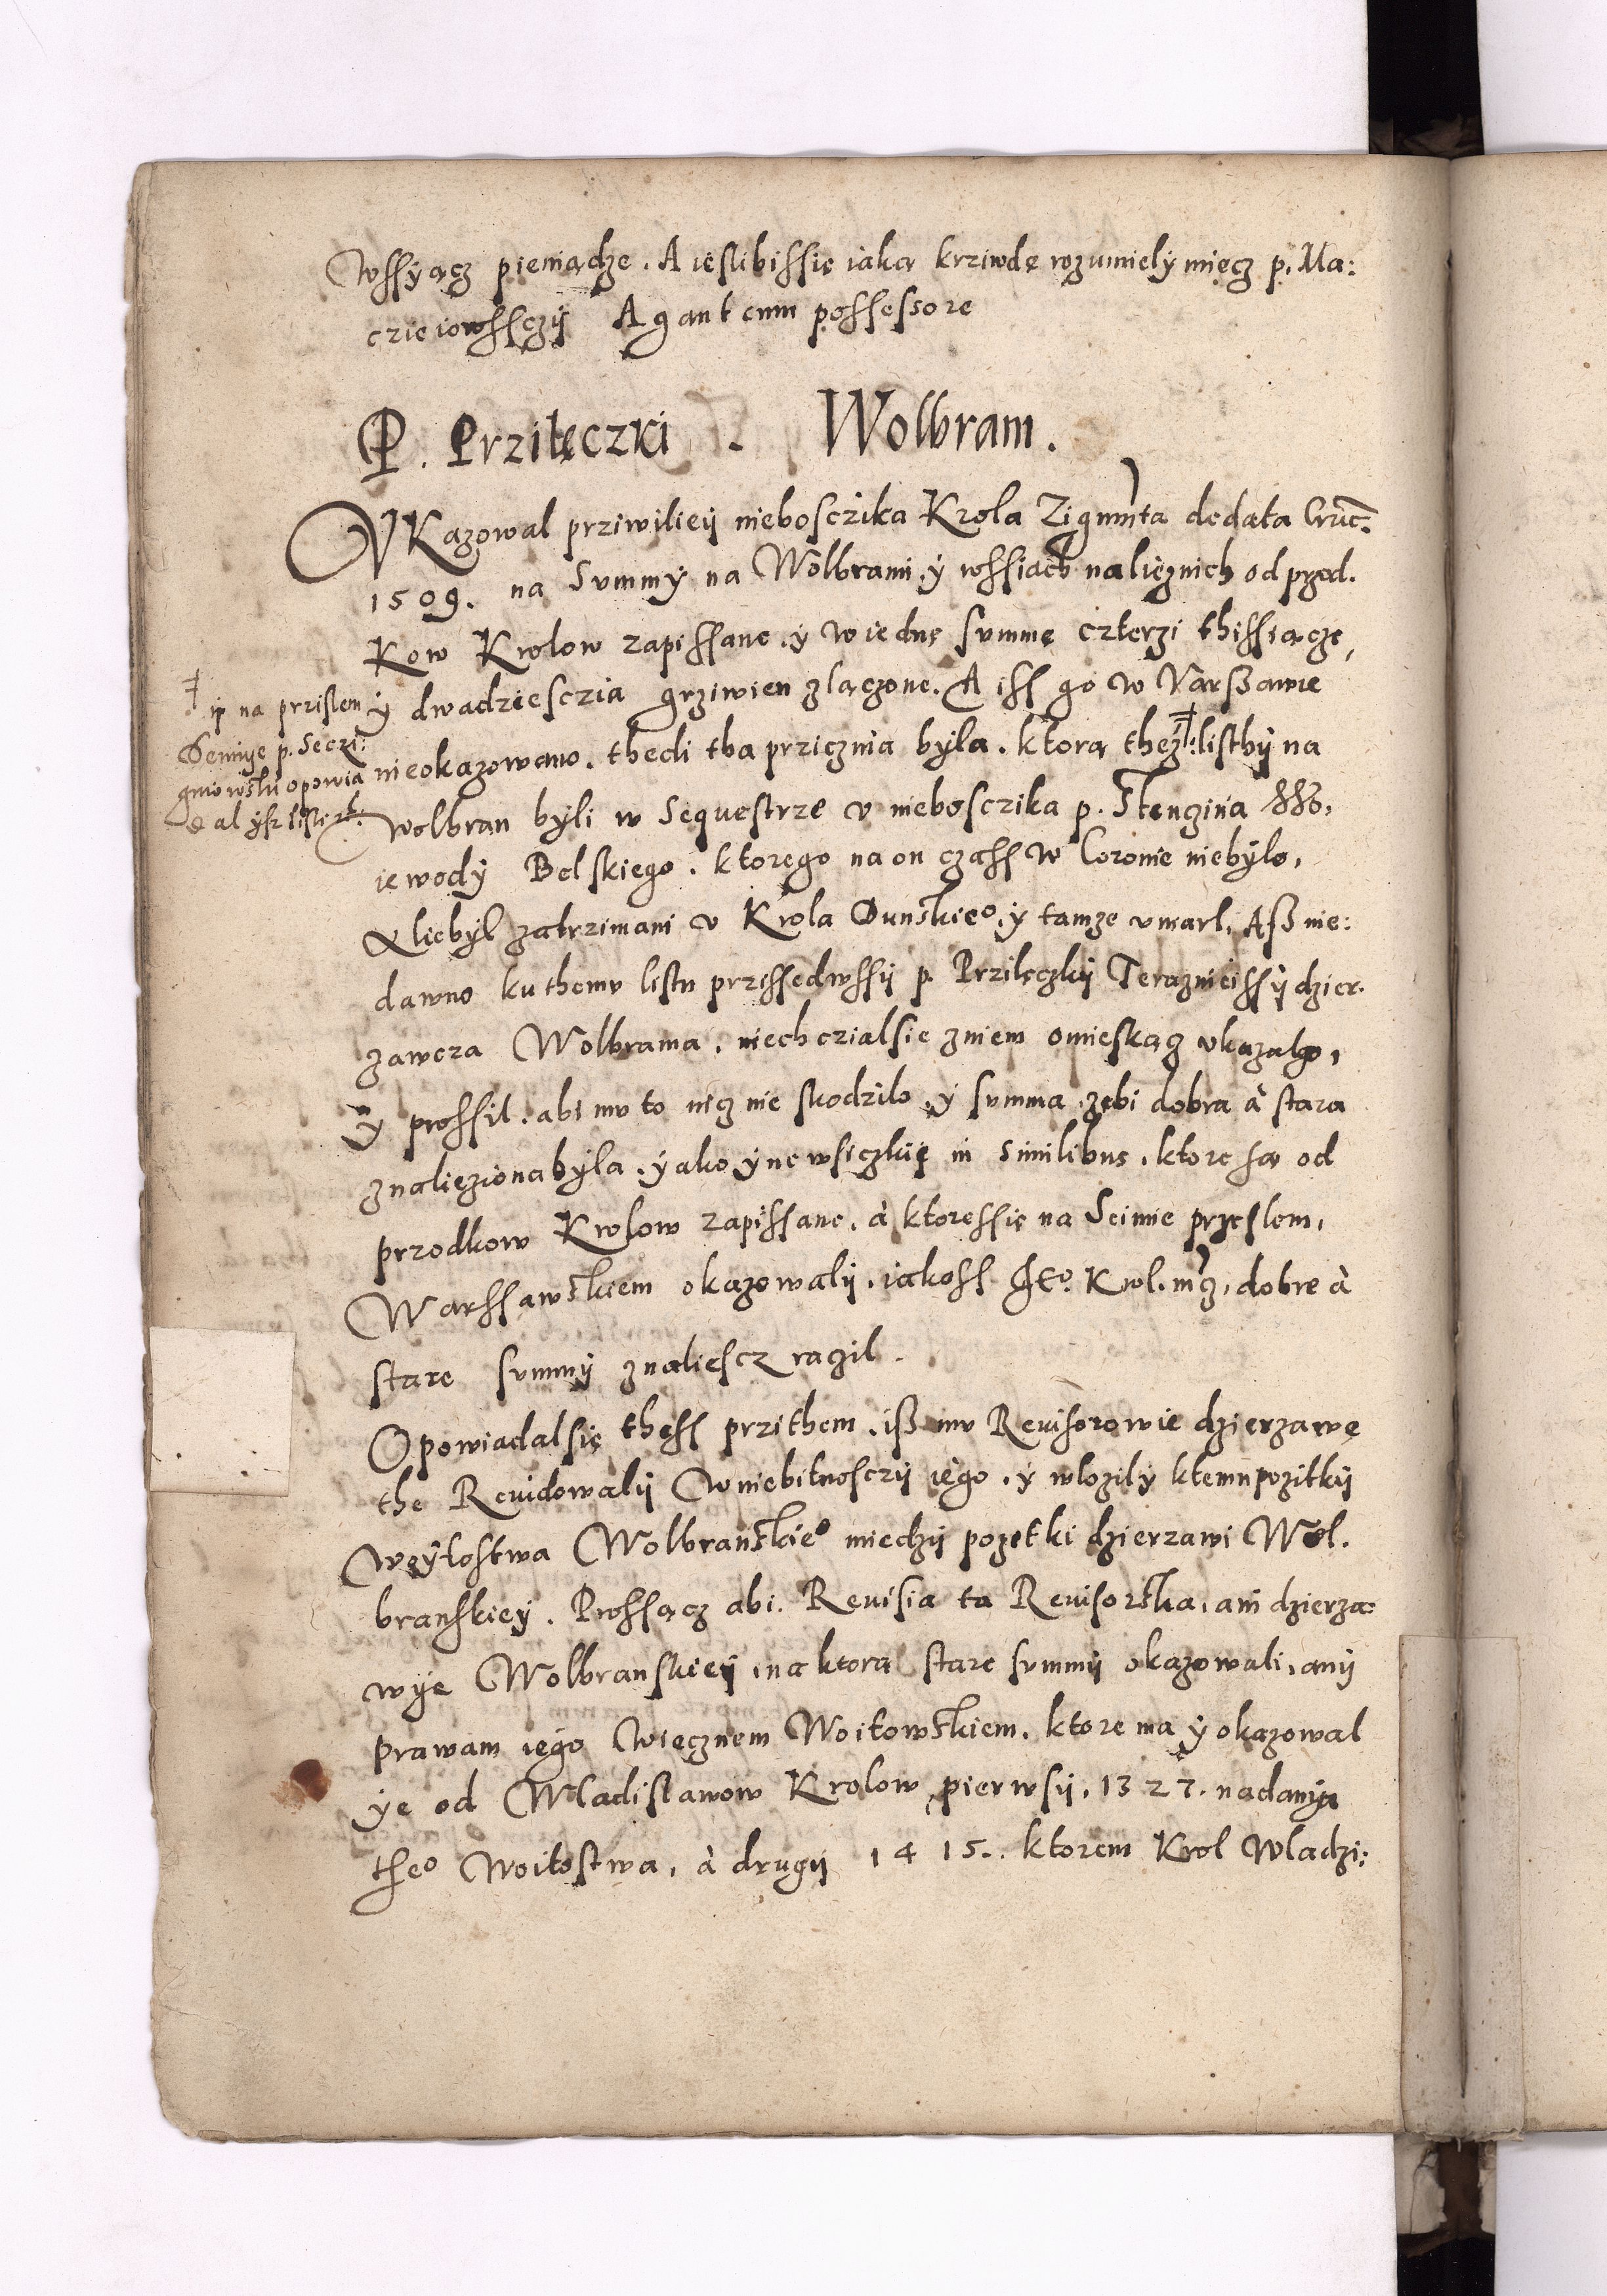 wssyącz pieniądze. A iesslibissie iaką krziwdę rozumiely miecz p. Ma:
czieiowssczy Agant cum possessore
P. Przilęczki - Wolbram.
VKazowal prziwiliey niebosczika Krola Zigmũta dedata Crac.
1509. na Summy na Wolbrami, y wssiach należnich od przod.
Kow Krolow zapissane, y w iednę summę czterzi thissiącze,
y dwadziesczia grziwien złączone. A iss go w Varszawie
nieokazowano. thedi tha prziczina była. ktorą theż ǂ listhy na
Wolbran byli w Sequestrze v niebosczika p. Stenczina Wo,
iewody Belskiego. ktorego na on czass w Coronie niebyło,
Aliebył zatrzimani v Krola Dunskieº, y tamze vmarł, Asz nie:
dawno ku themv listu przissedwssy p. Przilęczky Teraznieissy dzier.
zawcza Wolbrama, niechczialsie zniem omieskacz vkazałgo,
y prossil. abi mv to nicz nie skodziło, y summa zebi dobra à stara
znaliezionabyła, yako ynewsiczkię in similibus, ktore są od
przodkow Krolow zapissane, à ktoressię na Seimie przeslem,
Warssawskiem okazowaly, iakoss Jeº Krol. mcz, dobre à
stare summy znaliescz raczil.
Opowiadalsię thess przithem, isz mv Revisorowie dzierzawę
the Revidowaly w niebitnosczy iego, y włozily ktemu pozitky
woytostwa Wolbranskieº miedzy pozitki dzierzawi Wol.
branskiey. Prossącz abi Revisia ta Revisorska, ani dzierza:
wye Wolbranskiey, na ktorą stare summy okazowali, any
prawam iego wiecznem Woitowskiem, ktore ma y okazowal
ye od Wladislawow Krolow, pierwsy, 1327. nadanya
theº Woitostwa, à drugy 1415. ktorem Krol Wladzi:
ǂ ip na przislem
Seimye p. Seczi:
gniowski opowia
dal ysz listi et.